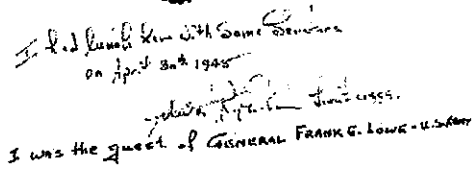 I had lunch here with Some Senators
on April 30th 1945
I was the guest of GENERAL FRANK E. LOWE - U.S. ARMY